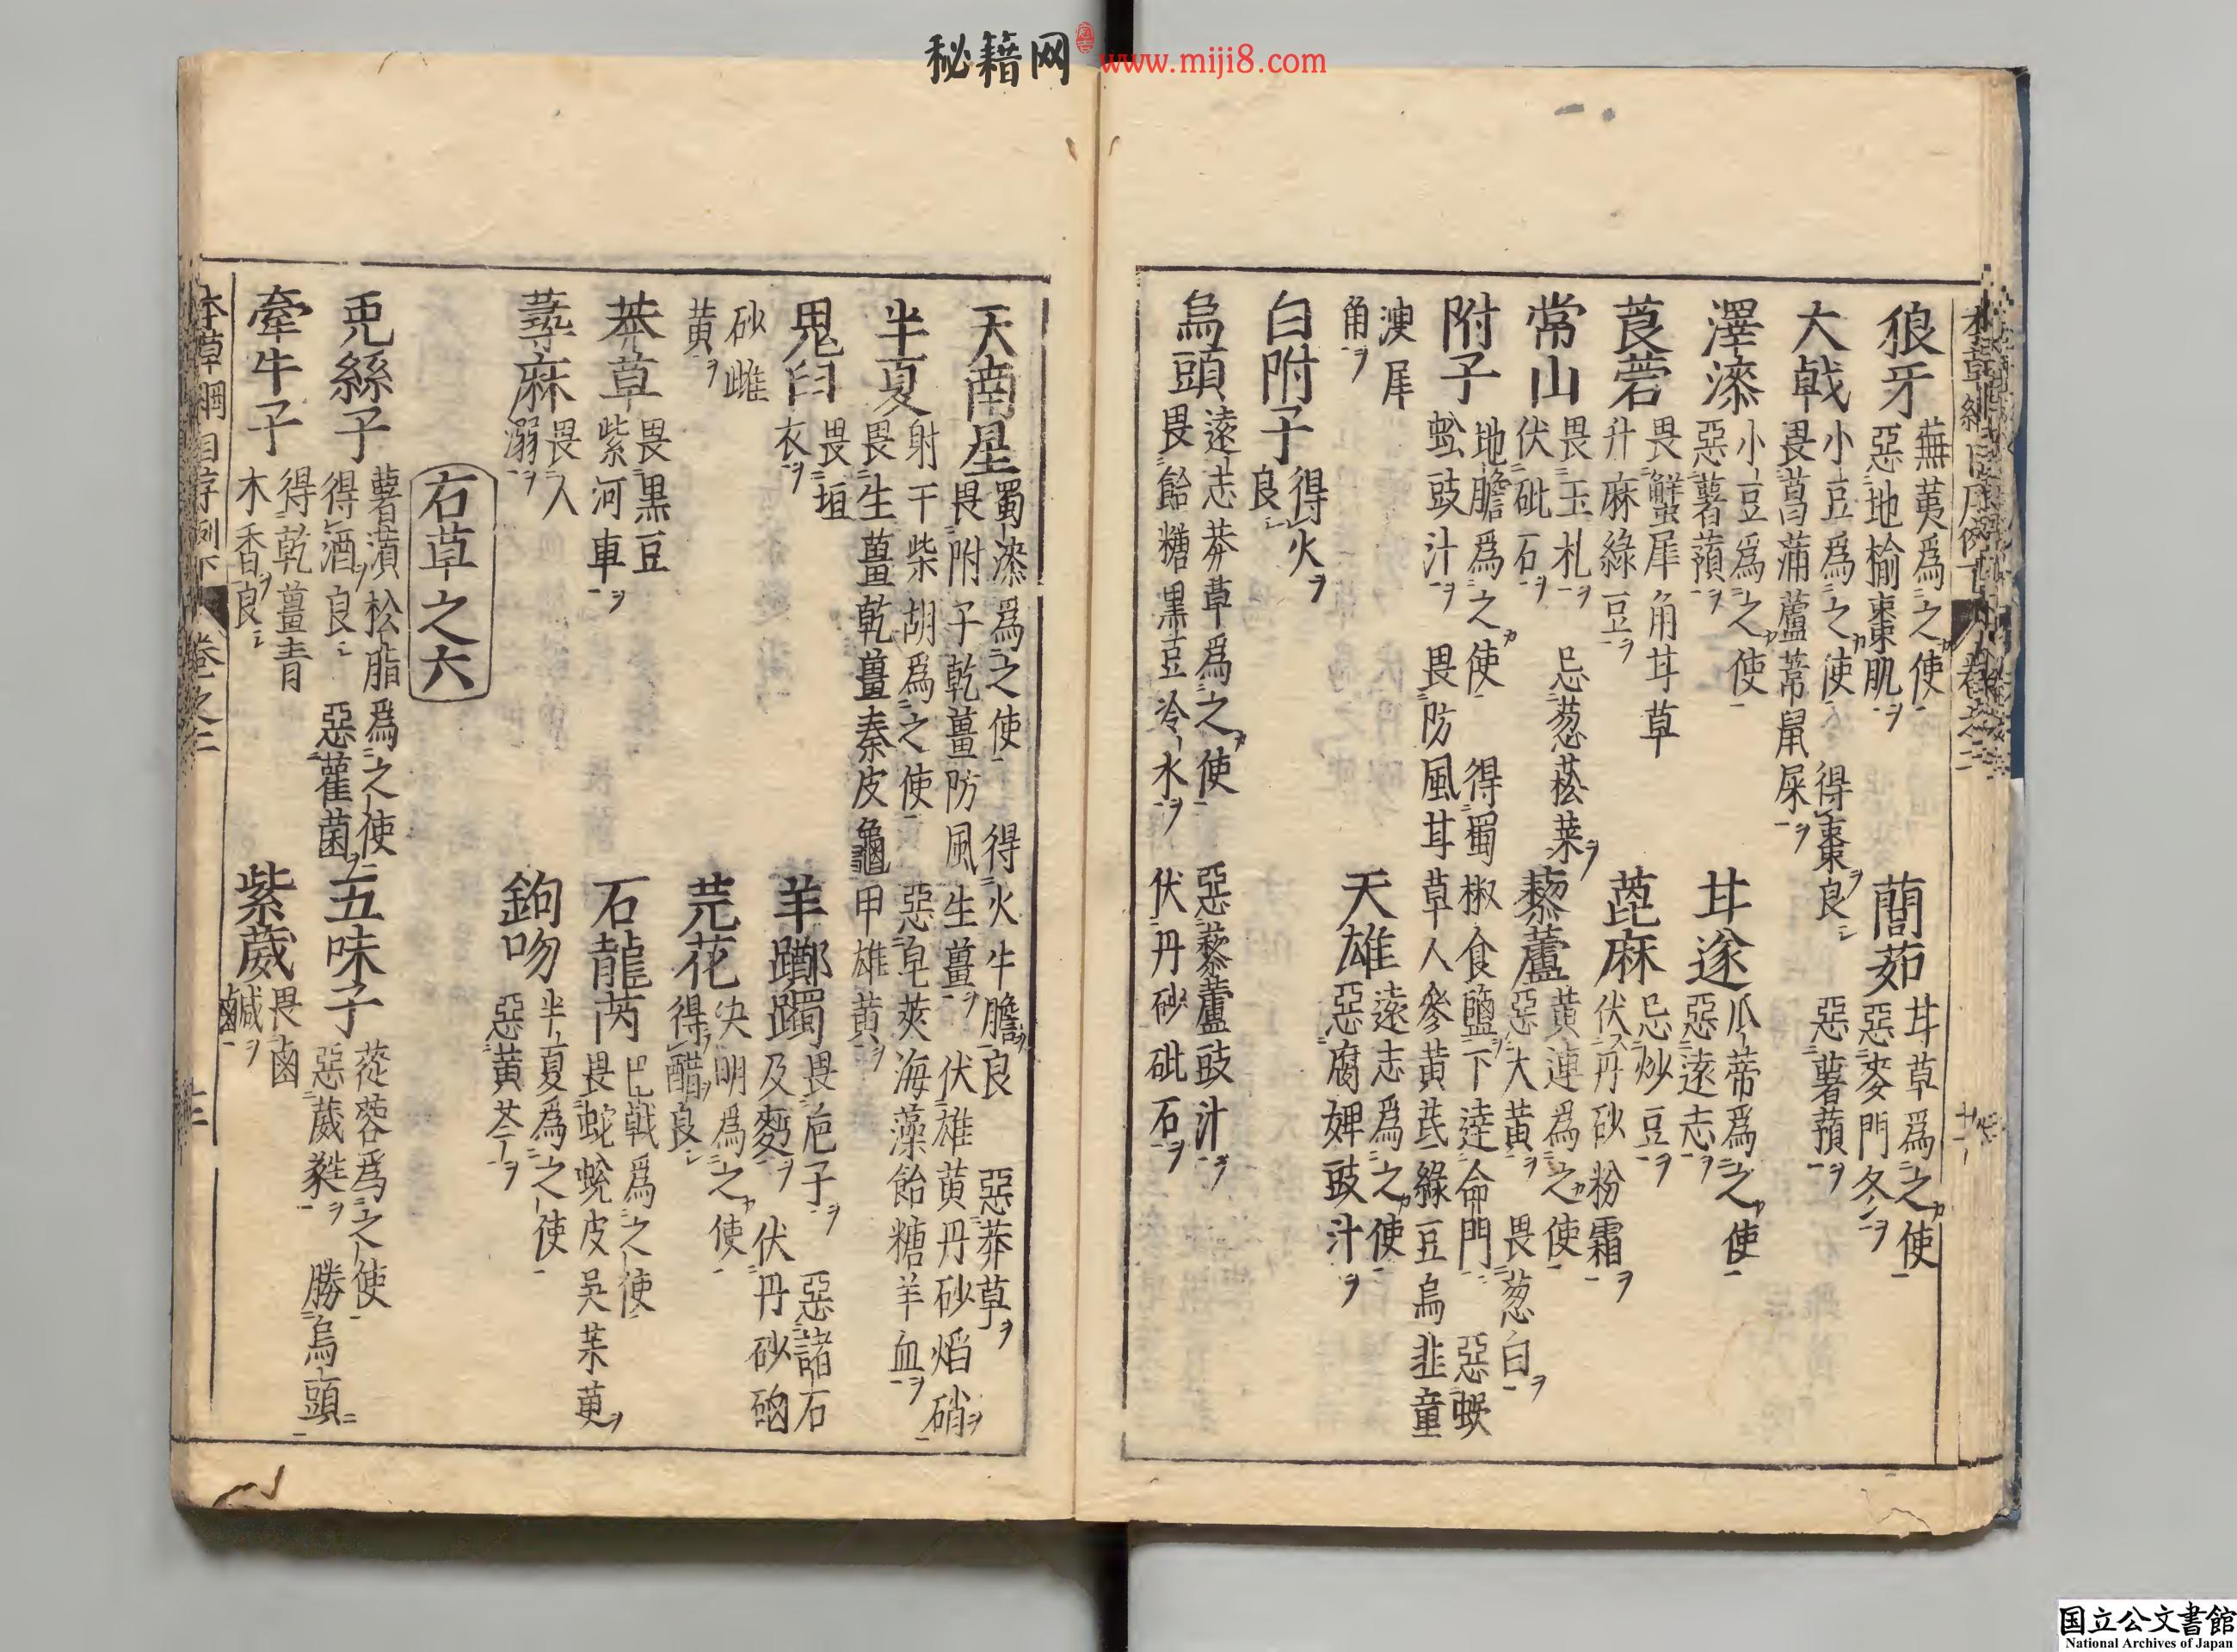 秘籍网
www.miji8.com
狼牙 蕪荑爲之使 惡地榆棗肌 䕡茹 甘草爲之使 惡麥門冬
大戟 小豆爲之使 得棗良 惡薯蕷 畏菖蒲蘆葦鼠屎
澤漆 小豆爲之使 惡薯蕷 甘遂 瓜蒂爲之使 惡遠志
莨菪 畏蟹犀角甘草 升麻綠豆 蓖麻 忌炒豆 伏丹砂粉霜
常山 畏玉札 忌葱菘菜 伏砒石 藜蘆 黃連爲之使 畏葱白 惡大黃
附子 地膽爲之使 得蜀椒食鹽下達命門 惡蜈
蚣豉汁 畏防風甘草人參黃芪綠豆烏韭童
溲犀角 天雄 遠志爲之使 惡腐婢豉汁
白附子 得火良
烏頭 遠志莽草爲之使 惡藜蘆豉汁
畏飴糖黑豆冷水 伏丹砂砒石
天南星 蜀漆爲之使 得火牛膽良 惡莽草
畏附子乾薑防風生薑 伏雄黃丹砂焰硝
半夏 射干柴胡爲之使 惡皂莢海藻飴糖羊血
畏生薑乾薑秦皮龜甲雄黃
鬼臼 畏垣衣 羊躑躅 畏巵子 惡諸石及麪 伏丹砂硇
砂雌黃 芫花 決明爲之使 得醋良
莽草 畏黑豆紫河車 石龍芮 巴戟爲之使 畏蛇蛻皮吳茱萸
蕁麻 畏人溺 鉤吻 半夏爲之使 惡黃芩
右草之六
兎絲子 薯蕷松脂爲之使 得酒良 惡雚菌 五味子 蓯蓉爲之使 惡葳蕤 勝烏頭
牽牛子 得乾薑青木香良 紫葳 畏鹵鹹
本草綱目序例下 卷之二
国立公文書館
National Archives of Japan